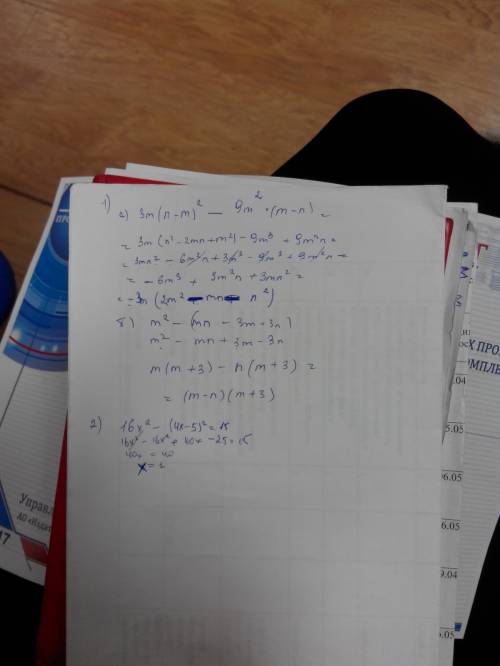 1)
а) 3m(n-m)² - 9m²·(m-n) =
= 3m(n²-2mn+m²) - 9m³ + 9m²n =
= 3mn² - 6m²n + 3m³ - 9m³ + 9m²n =
= -6m³ + 3m²n + 3mn² =
= -3m(2m² - mn - n²)
б) m² - (mn - 3m + 3n)
m² - mn + 3m - 3n
m(m+3) - n(m+3) =
= (m-n)(m+3)
2) 16x² - (4x-5)² = 15
16x² - 16x² + 40x - 25 = 15
40x = 40
x = 1
Управ
АО «Издат
17
ПРО
Х ПРО
МПЛЕ
.05
06.05
9.04
6.05